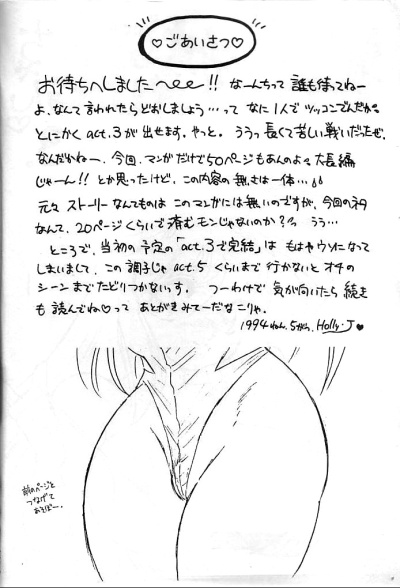 ♡ごあいさつ♡
お待ちへしました〜!! なーんちって 誰も待ってねー
よ、なんて言われたらどおしましょう…って なに1人でツッコンでんだか。
とにかく act.3 が出せます。やっと。 ううっ 長くて苦しい戦いだったぜ。
なんだかねー、今回、マンガだけで50ページもあんのよ。大長編
じゃーん!! とか思ったけど、この内容の無さは一体…
元々 ストーリーなんてものは このマンガには無いのですが、今回のネタ
なんて、20ページくらいで済むモンじゃないのか?っ うう…
ところで、当初の予定の「act.3で完結」は もはやウソになって
しまいまして、この調子じゃ act.5 くらいまで 行かないと オチの
シーンまでたどりつかないっす。 つーわけで 気が向いたら 続き
も 読んでね♡って あとがきみてーだなこりゃ。
1994ねん.5がつ. Holly・J♥
前のページと
つなげて
あそぼー。